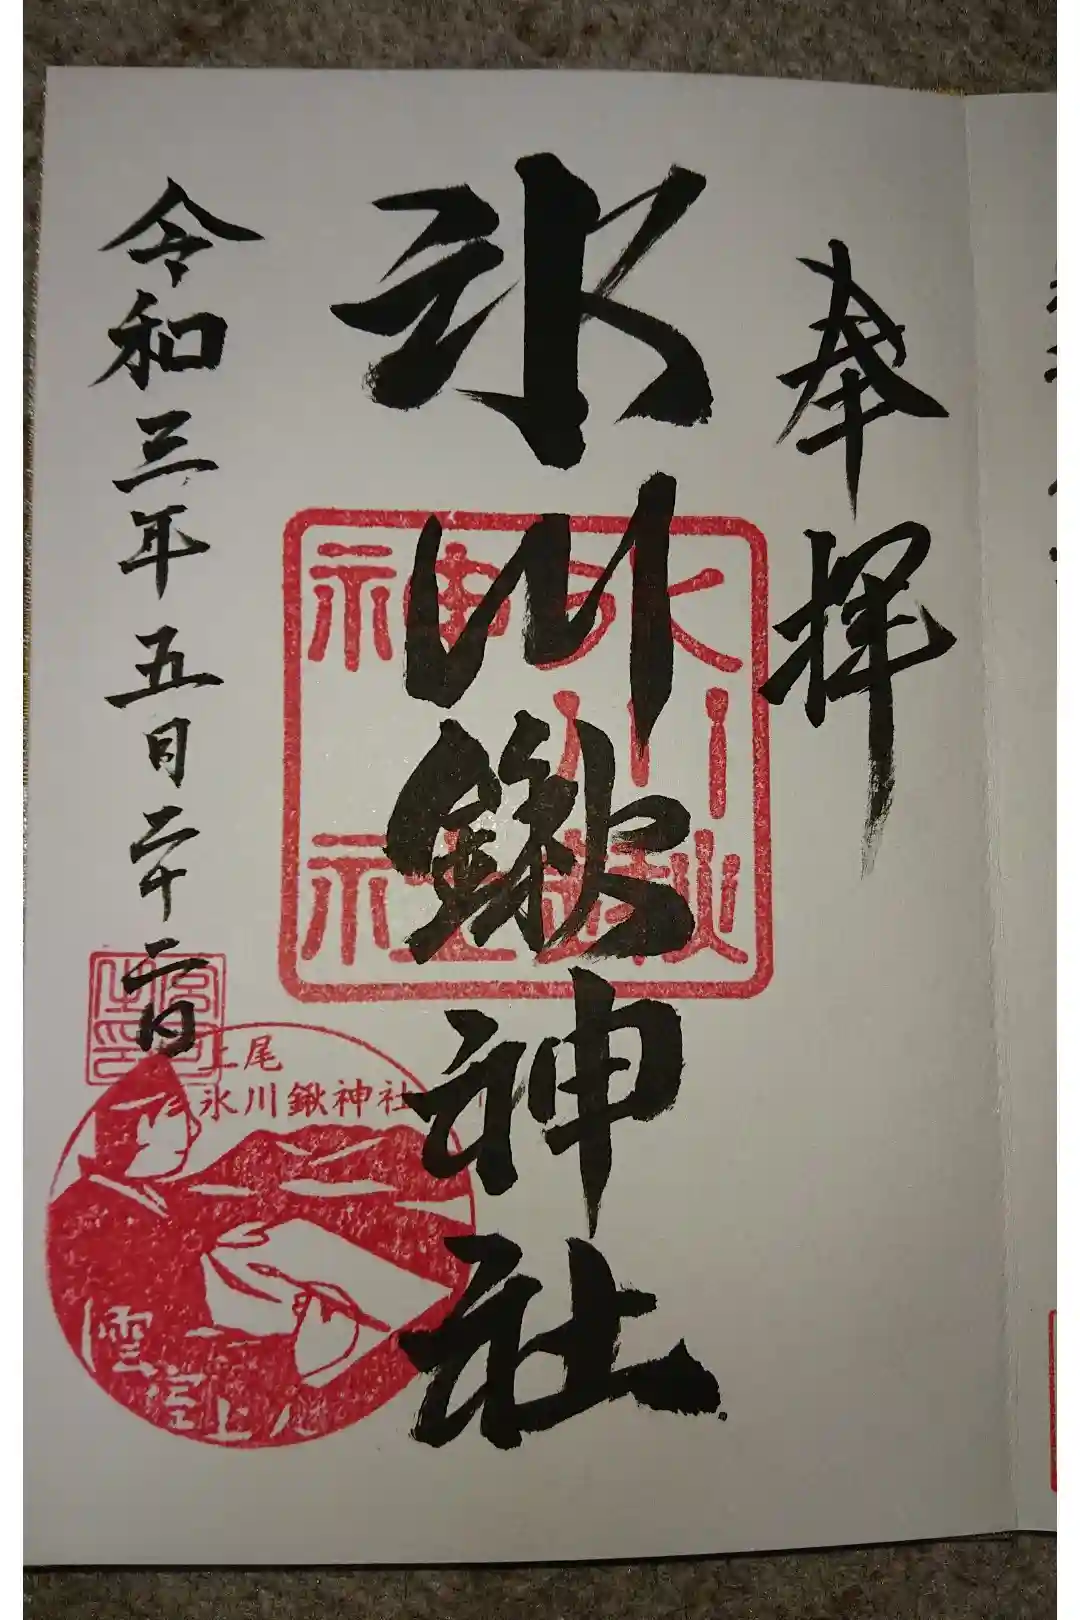 奉拝
氷川鍬神社
氷川
鍬
神社
令和三年五月二十二日
上尾
氷川鍬神社
雲室上人